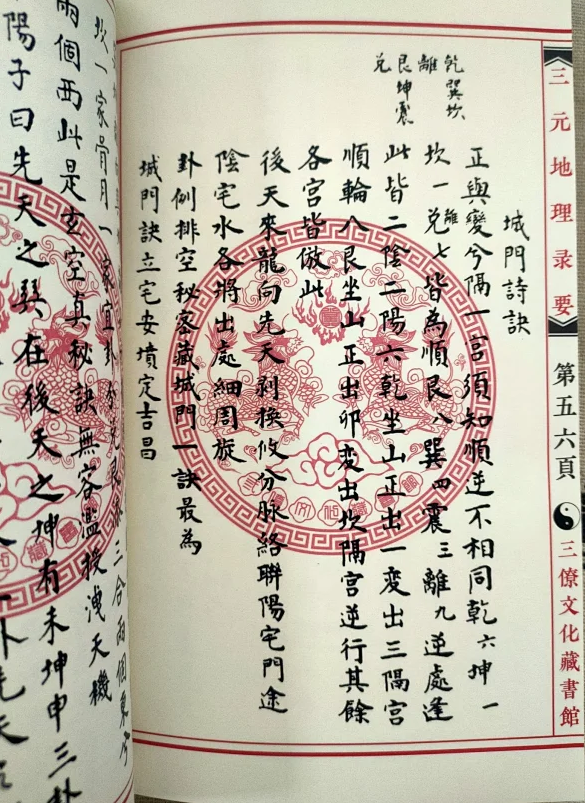 三元地理录要
第五六頁
三僚文化藏書館
乾巽坎
離
艮坤震
兑
城門詩訣
正與變兮隔一宫須知順逆不相同乾六坤一
坎一兑離七皆為順艮八巽四震三離九逆處逢
此皆二陰二陽六乾坐山正出一変出三隔宫
順輪八艮坐山正出卯変出坎隔宫逆行其餘
各宫皆倣此
後天來龍向先天剥換攸分脉絡聯陽宅門途
陰宅水各將出處細周旋
卦例排空秘密藏城門一訣最為
城門訣立宅安墳定吉昌
坎一家骨月一家宜卦
三合兩個東
兩個西此是玄空真秘訣無容濫授洩天機
陽子曰先天之巽在後天之坤有未坤申三卦